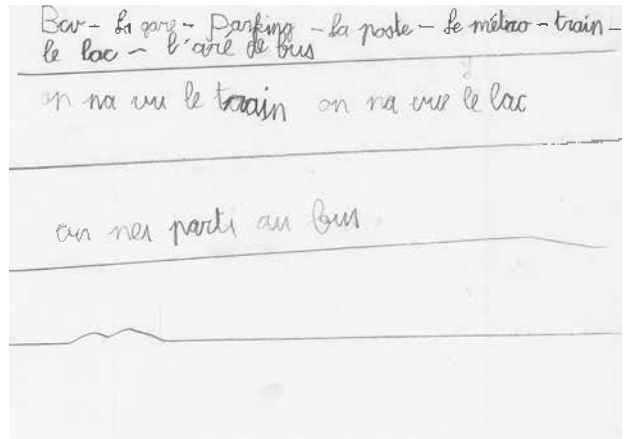 Bar - La gare - Parking - La poste - Le métro - train -
le lac - l'aré de bus
on na vu le train on na vue le lac
on nes parti au bus